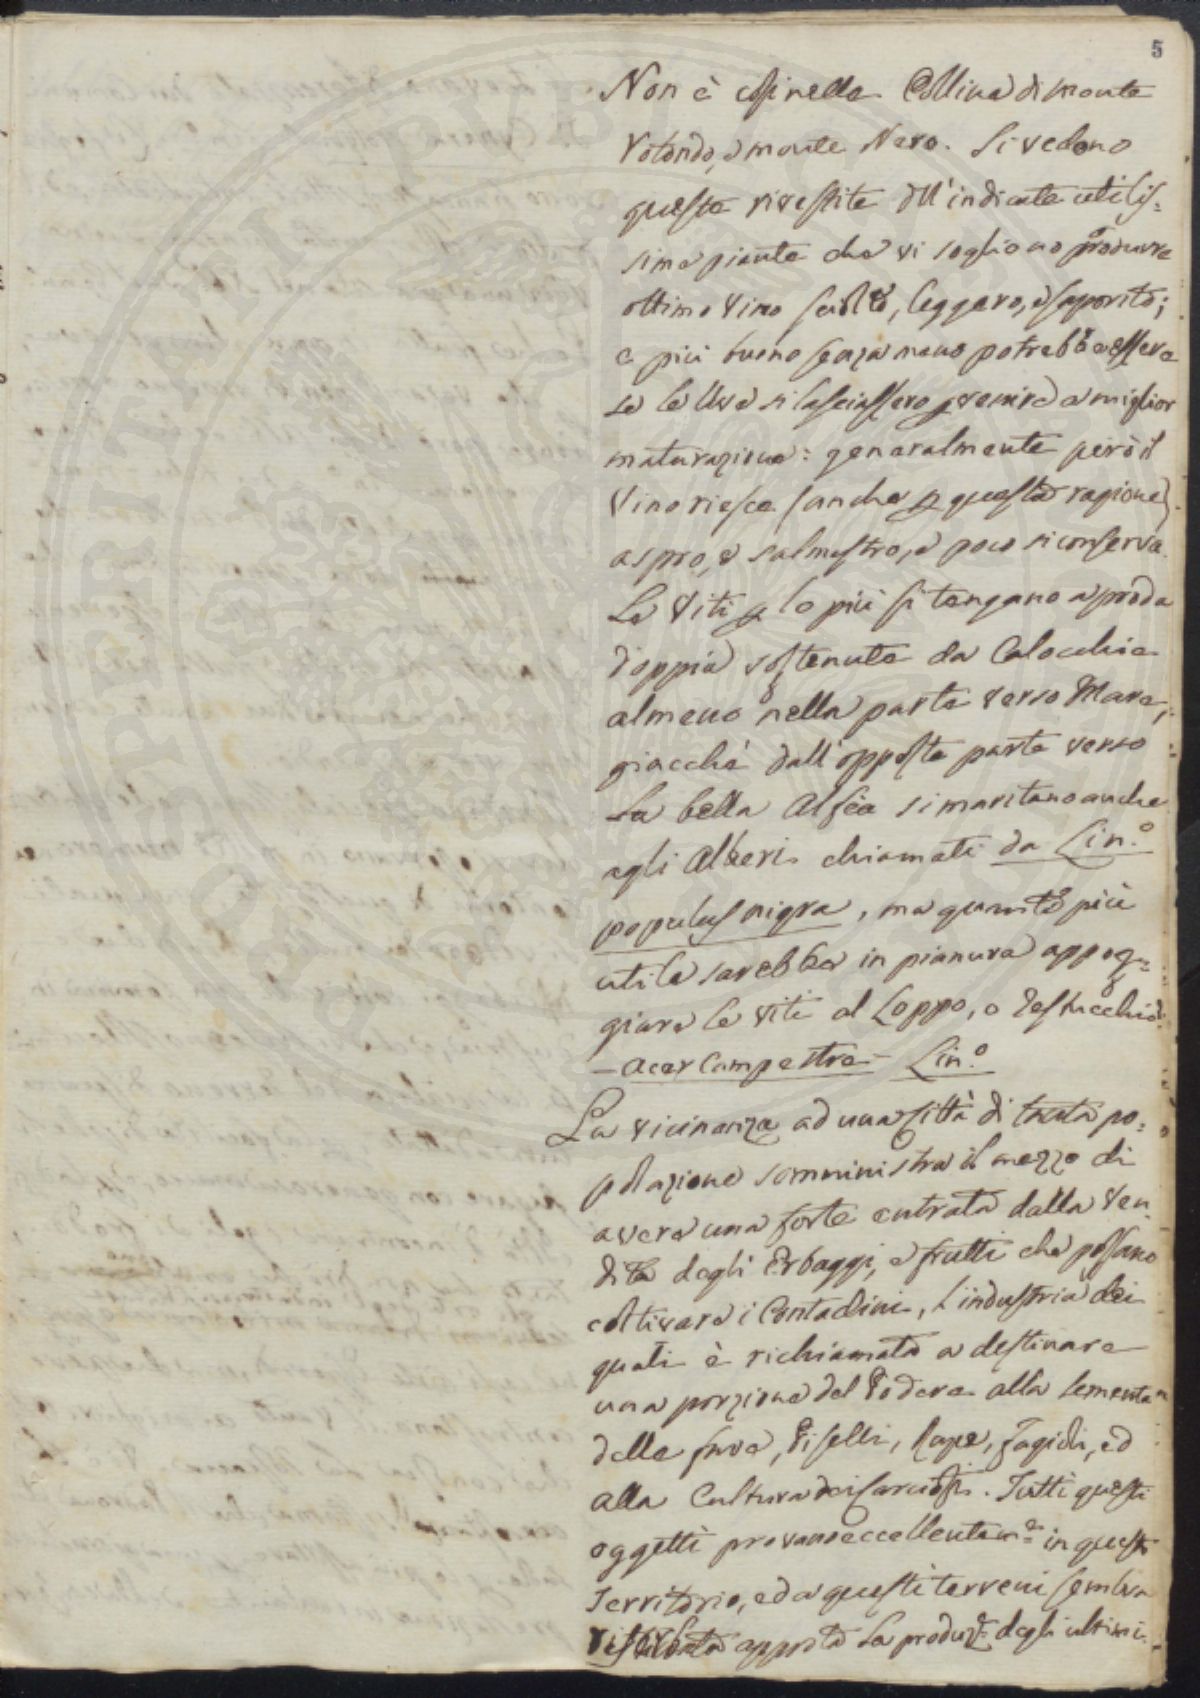 5
Non è così nelle Collina di monte
rotondo, e monte Nero. Si vedono
queste rivestite dell'indicate utilis=
sime piante che vi sogliono produrre
ottimo vino sciolto, leggero, e saporito;
e più buono senza meno potrebbe essere
se le Uve si lasciassero venire a miglior
maturazione: generalmente però il
Vino riesce (anche p questa ragione)
aspro, e salmastro, e poco si conserva.
Le Viti p lo più si tengano a proda
doppia sostenute da Calocchie
almeno nella parte verso Mare,
giacchè dall'opposta parte verso
La bella Alfèa si maritano anche
agli Alberi chiamati da Lin.º
populus nigra, ma quanto più
utile sarebbe in pianura appog=
giare le viti al Loppo, o Testucchio
– acer Campestre – Lin.º
La vicinanza ad una Città di tanta po=
polazione somministra il mezzo di
avere una forte entrata dalla Ven
dita degli Erbaggi, e frutti che possano
coltivare i Contadini, l'industria dei
quali è richiamata a destinare
una porzione del Podere alla sementa
delle fave, Piselli, Rape, fagioli, ed
alla Cultura dei Carciofi. Tutti questi
oggetti provano eccellentem.e in questo
Territorio, ed a questi terreni sembra
apposta La produz.e degli ultimi